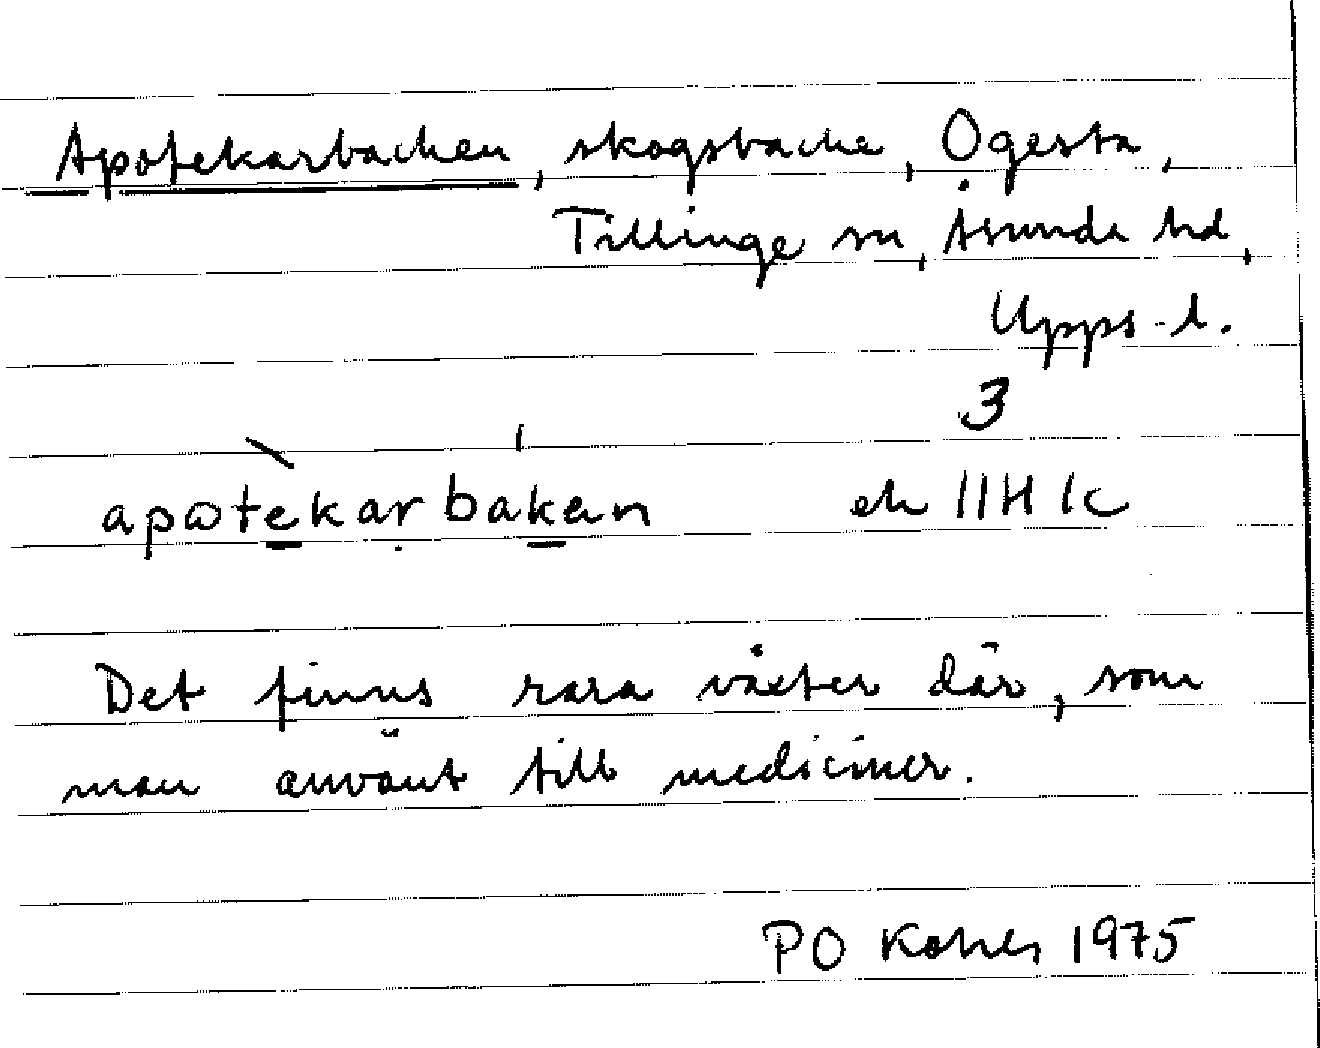 Apotekarbacken, skogsbacke, Ögesta,
Tillinge sn, Åsunda hd,
Upps. l.
3
apotekarbakan ek 11H 1c
Det finns rara växter där, som
man använt till mediciner.
PO 1975